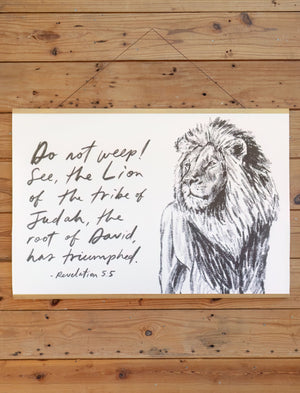 Do not weep!
See, the Lion
of the tribe of
Judah, the
root of David,
has triumphed.
- Revelation 5:5